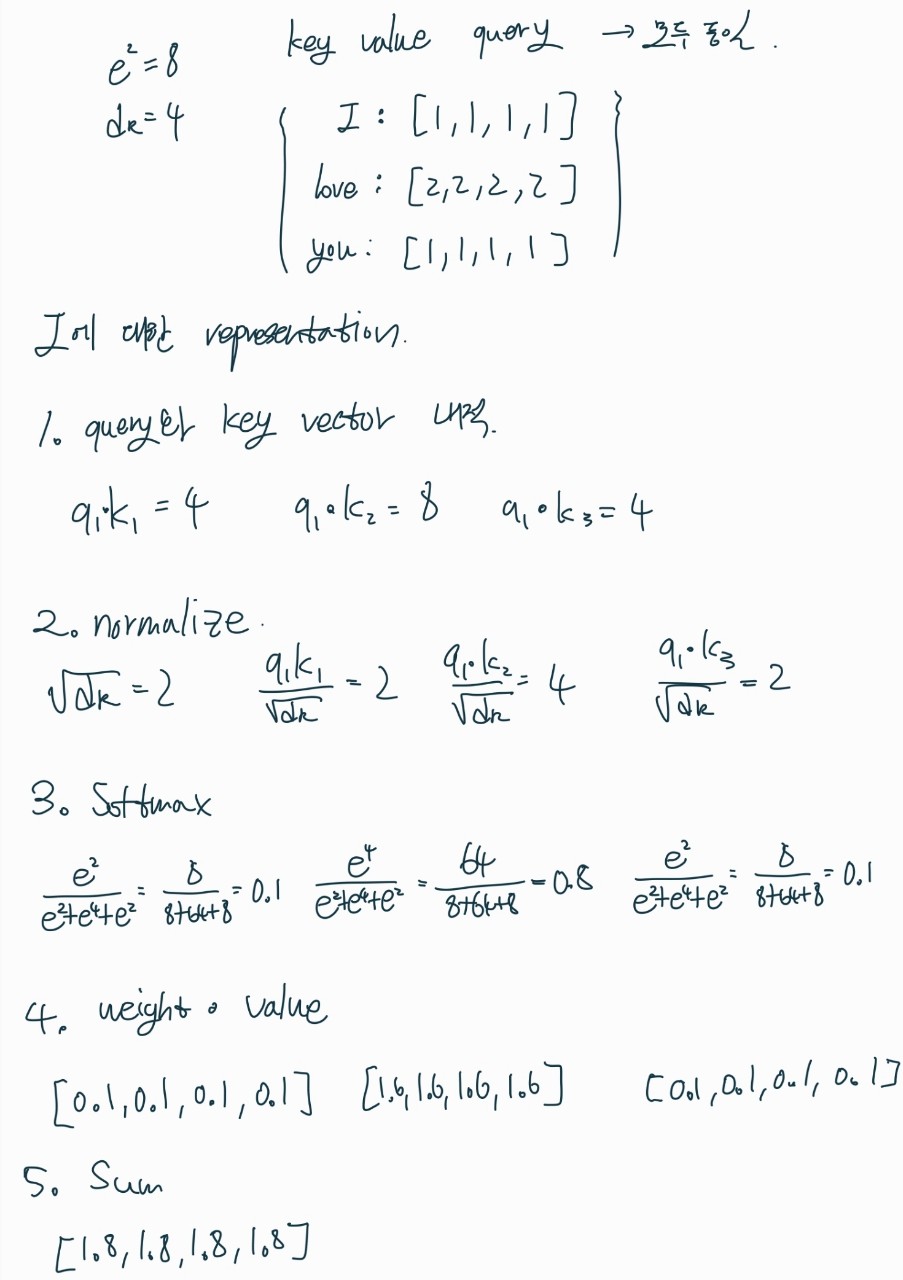 e²=8 key value query → 모두 동일.
dk=4 I : [1,1,1,1]
love : [2,2,2,2]
you : [1,1,1,1]
I에 대한 representation.
1. query와 key vector 내적.
q₁·k₁ = 4 q₁·k₂ = 8 q₁·k₃ = 4
2. normalize.
√dk = 2 q₁k₁/√dk = 2 q₁·k₂/√dk = 4 q₁·k₃/√dk = 2
3. Softmax
e²/(e²+e⁴+e²) = 8/(8+64+8) = 0.1 e⁴/(e²+e⁴+e²) = 64/(8+64+8) = 0.8 e²/(e²+e⁴+e²) = 8/(8+64+8) = 0.1
4. weight · value
[0.1,0.1,0.1,0.1] [1.6,1.6,1.6,1.6] [0.1,0.1,0.1,0.1]
5. Sum
[1.8,1.8,1.8,1.8]